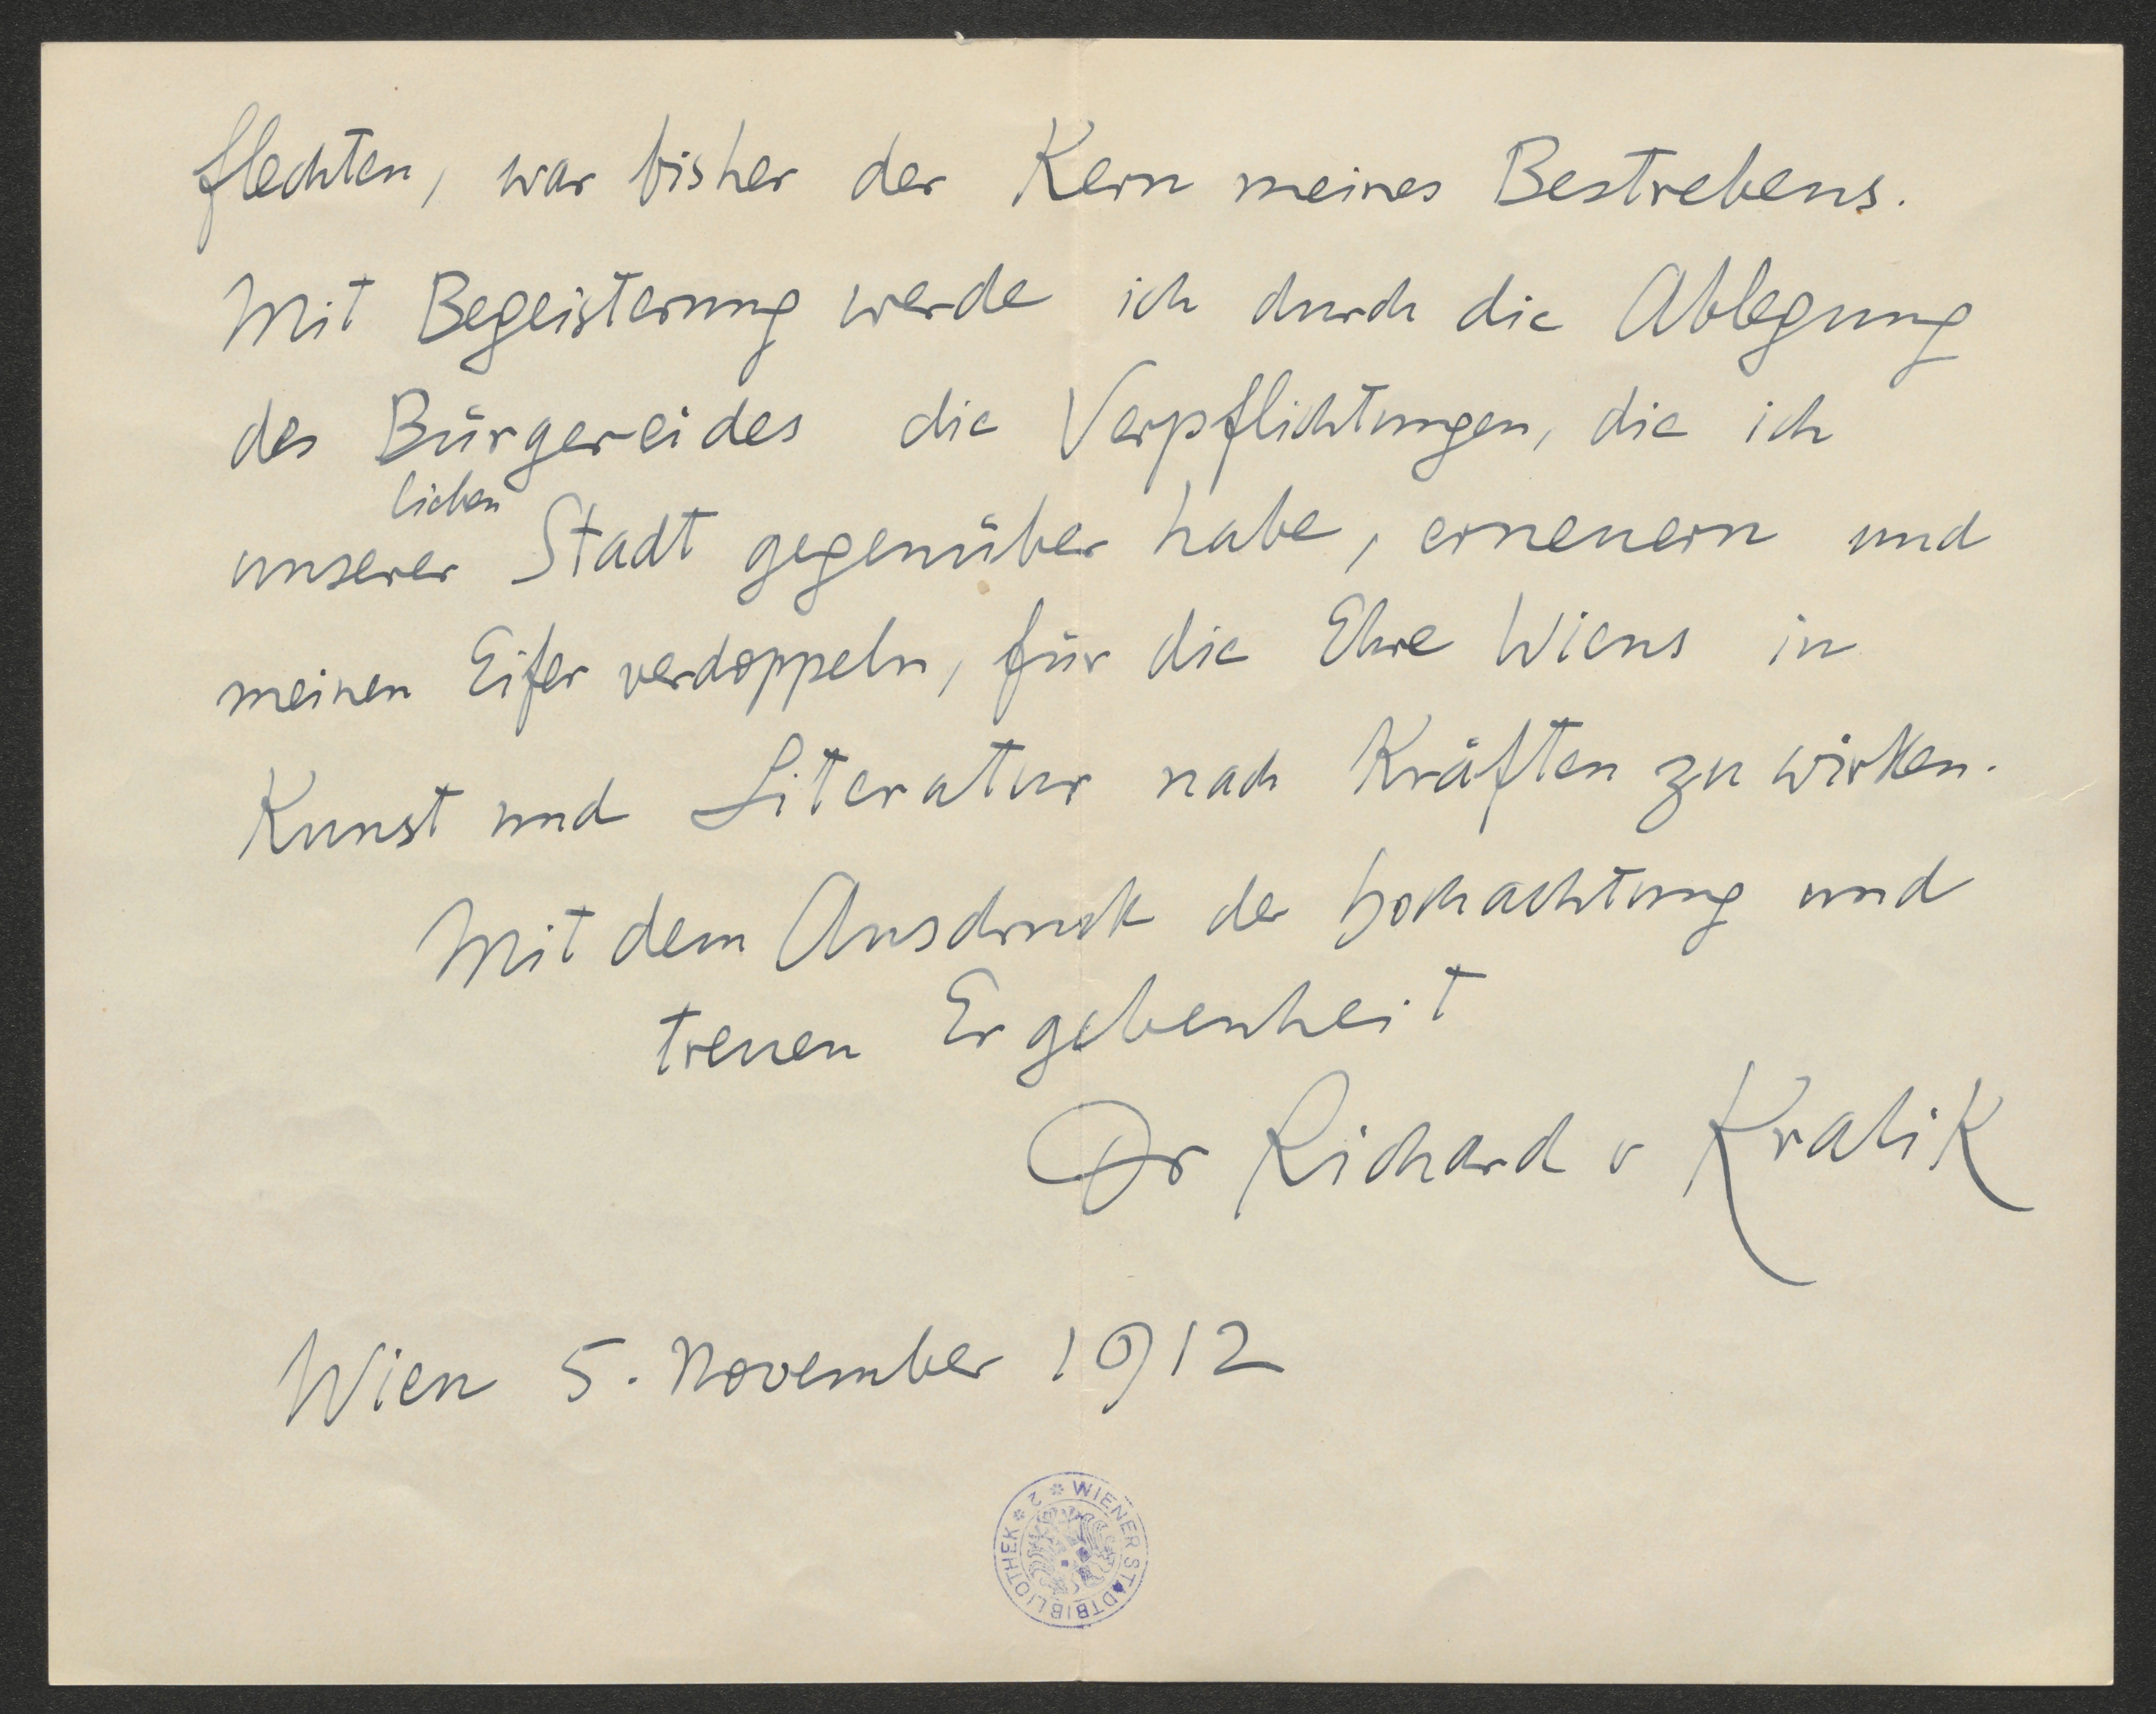 flechten, war bisher der Kern meines Bestrebens.
Mit Begeisterung werde ich durch die Ablegung
des Bürgereides die Verpflichtungen, die ich
lieben
unserer Stadt gegenüber habe, erneuern und
meinen Eifer verdoppeln, für die Ehre Wiens in
Kunst und Literatur nach Kräften zu wirken.
Mit dem Ausdruck der Hochachtung und
treuen Ergebenheit
Dr Richard v Kralik
Wien 5. November 1912
WIENER STADTBIBLIOTHEK * 2 *